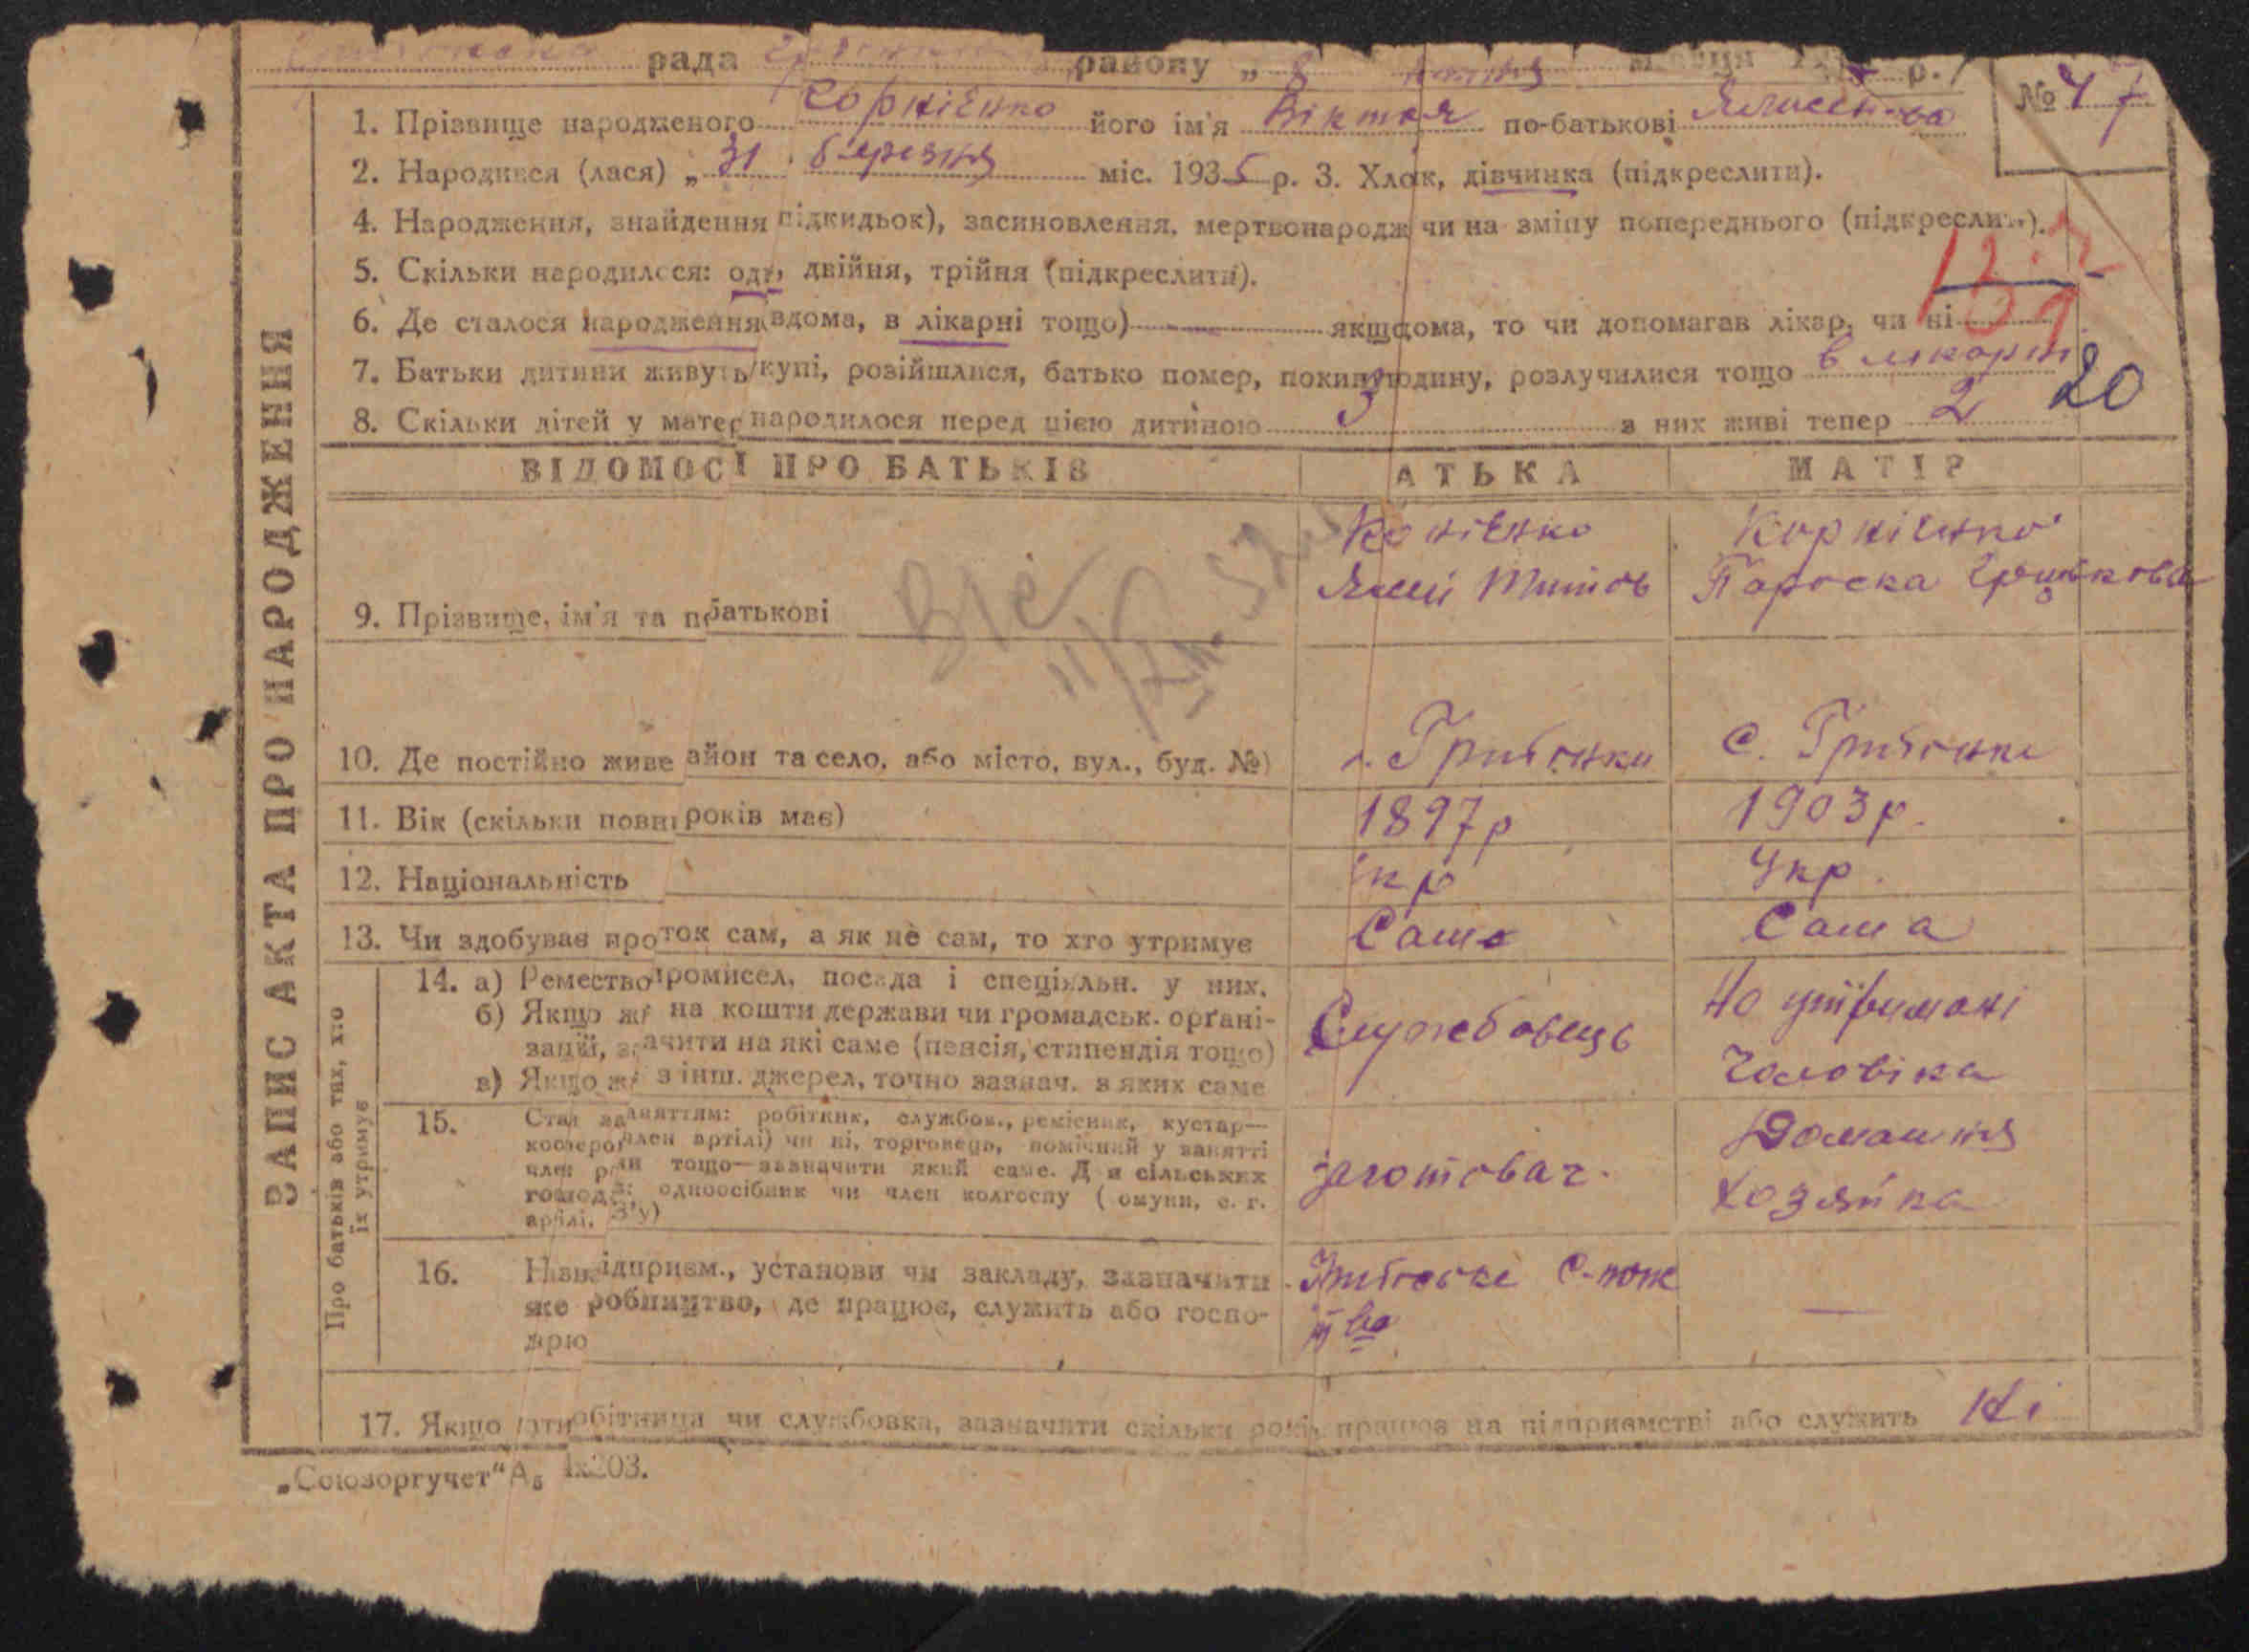 рада району „ 8
№ 47
1. Прізвище народженого Корнієнко його ім'я Вікторя по-батькові
2. Народився (лася) „ 31 березня міс. 1935 р. 3. Хлок, дівчинка (підкреслити).
4. Народження, знайдення підкидьок), засиновлення, мертвонародж чи на зміну попереднього (підкреслити).
5. Скільки народилося: одн, двійня, трійня (підкреслити).
6. Де сталося народження (вдома, в лікарні тощо) якщо дома, то чи допомагав лікар, чи ні
7. Батьки дитини живуть купі, розійшлися, батько помер, покинув родину, розлучилися тощо в лікарні
20
8. Скільки дітей у матер народилося перед цією дитиною 3 з них живі тепер 2
ВІДОМОСІ ПРО БАТЬКІВ АТЬКА МАТІР
9. Прізвище, ім'я та пбатькові
Конієнко Корнієнко
Титов Пароска
10. Де постійно живе айон та село, або місто, вул., буд. №) с. Грибінки с. Грибінки
11. Вік (скільки повни років має) 1897р 1903р.
12. Національність Укр Укр.
13. Чи здобуває проток сам, а як не сам, то хто утримує Саме Сама
14. а) Ремество промисел, посада і спеціяльн. у них.
б) Якщо жи на кошти держави чи громадськ. орґані-
зації, зачити на які саме (пенсія, стипендія тощо)
в) Якщо жи з інш. джерел, точно зазнач. з яких саме
Службовець
На утримані
чоловіка
15. Стан заняттям: робітник, службов., ремісник, кустар—
член артілі) чи ні, торговець, помічний у занятті
член тощо—зазначити який саме. Для сільських
господ.: одноосібник чи член колгоспу ( омуни, с. г.
артілі, З'у)
заготовач.
Домашня
хозяйка
16. Назв підприєм., установи чи закладу, зазначити
яке робництво, де працює, служить або госпо-
дрю
С-пож
т во
—
17. Якщо робітниця чи службовка, зазначити скільки рокі працює на підприємстві або служить Ні
„Союзоргучет“ А5 1х203.
ЗАПИС АКТА ПРО НАРОДЖЕННЯ
Про батьків або тих, хто
їх утримує